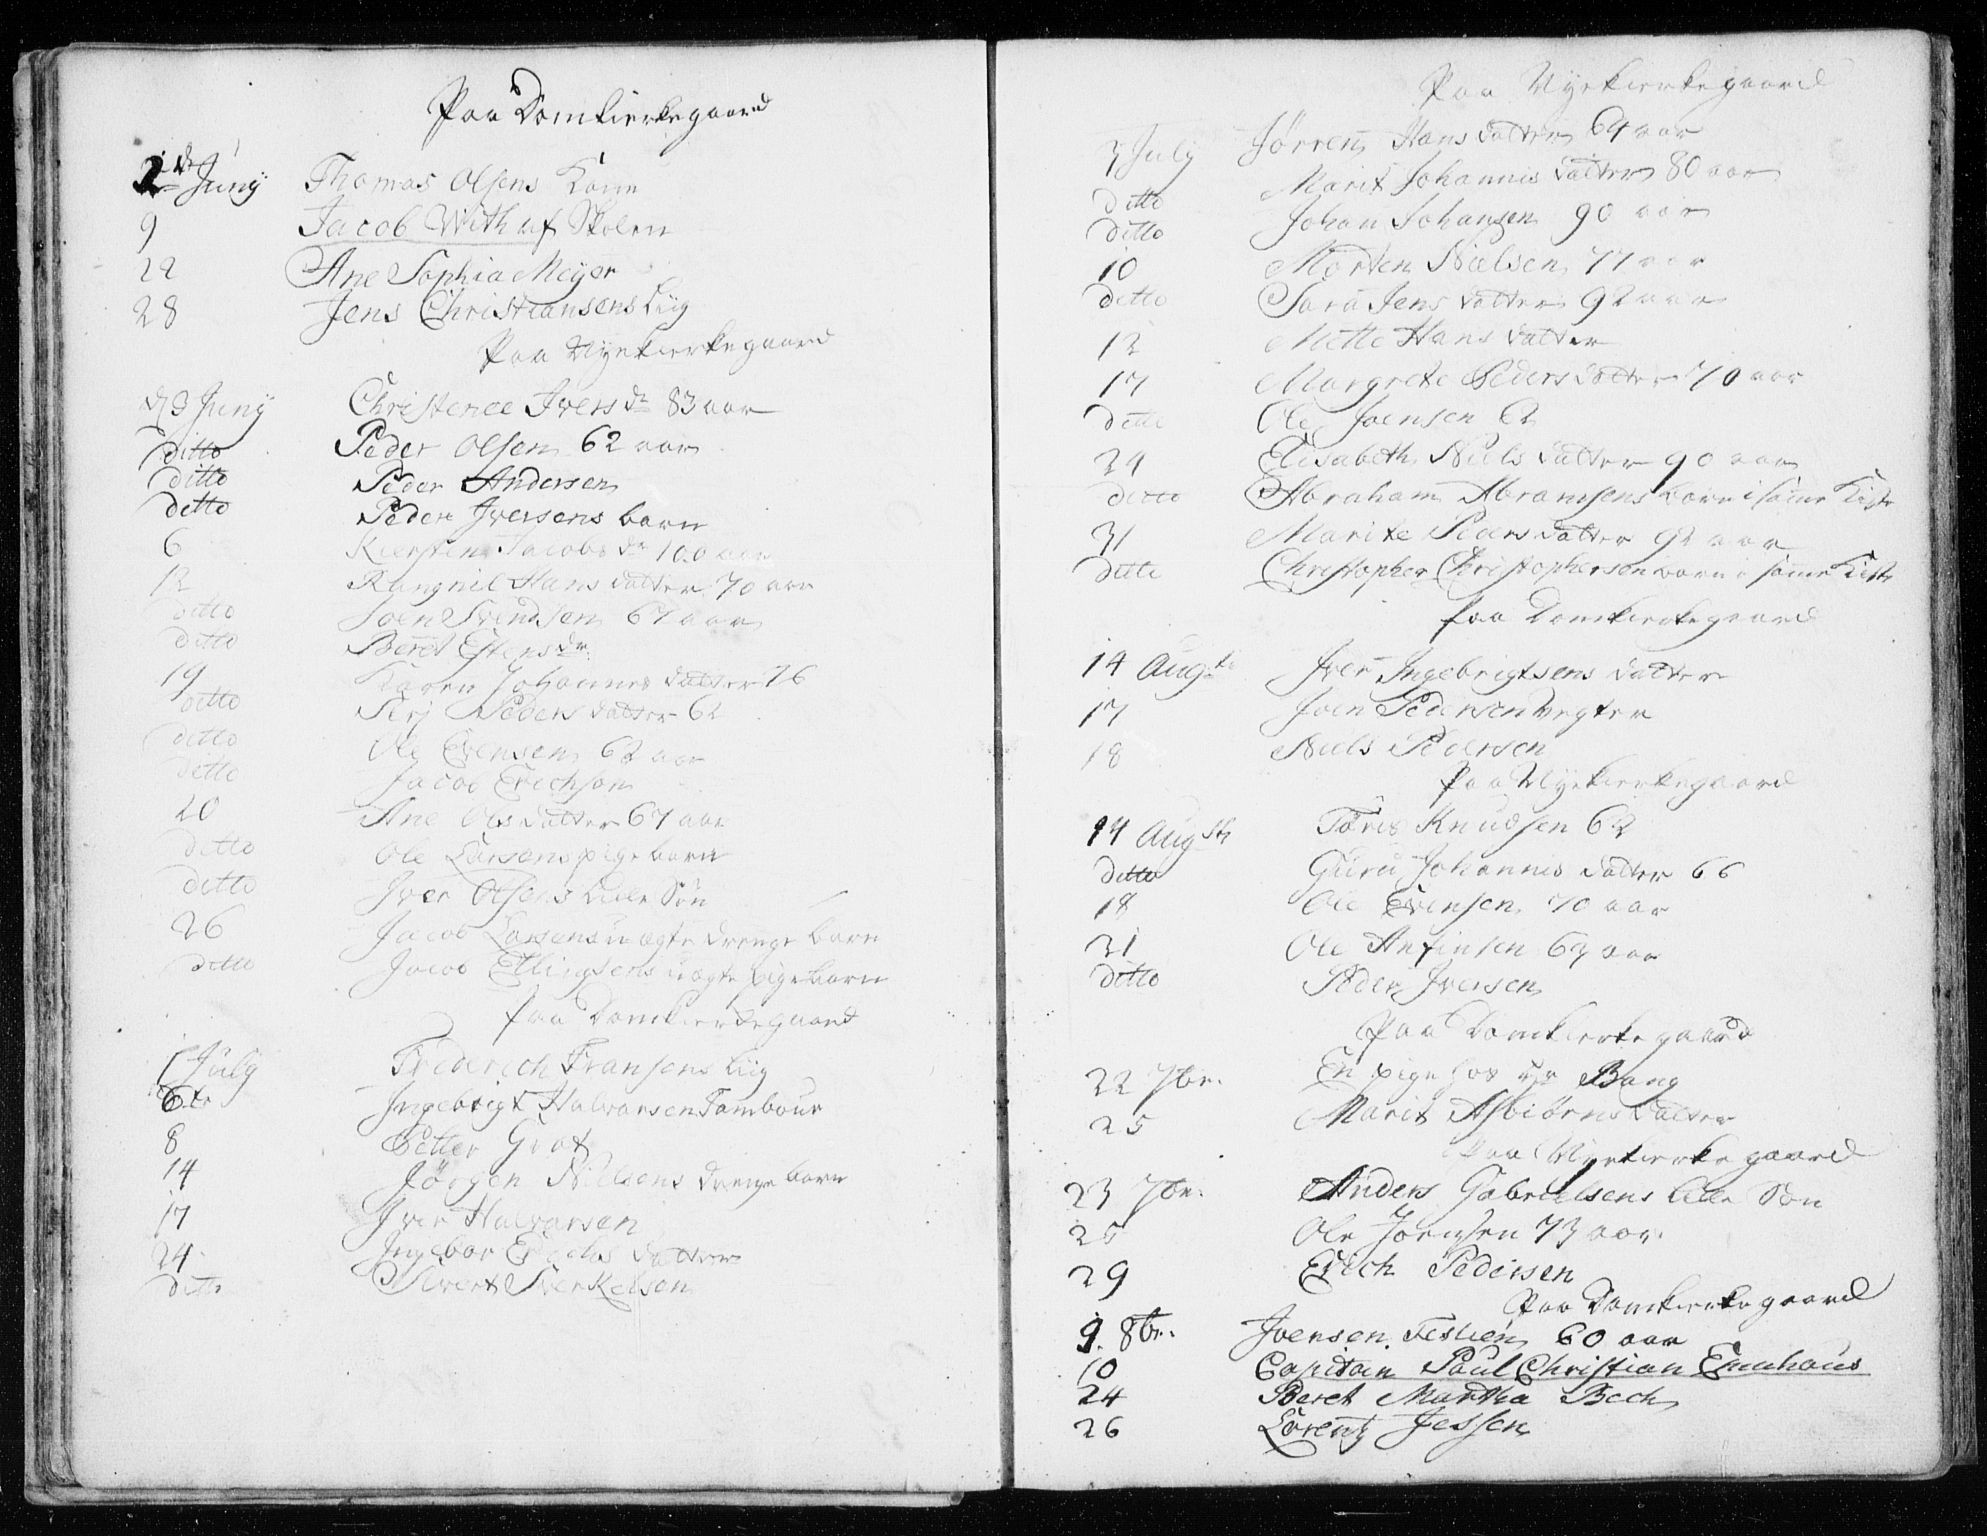 Paa Domkierkegaard
2de Juny Thomas Olsens Kone
9 Jacob With af Skolen
22 Ane Sophia Meyer
28 Jens Christiansens Liig
Paa Nyekierkegaard
d 3 Juny Christence Ivers dr 83 aar
ditto Peder Olsen 62 aar
ditto Peder Andersen
ditto Peder Iversens barn
6 Kiersten Jacobs dr 100 aar
12 Rangnil Hans datter 70 aar
ditto Joen Svendsen 67 aar
ditto Beret Estens dr
19 Karen Johannes datter 76
ditto Siri Peders datter 62
ditto Ole Evensen 62 aar
ditto Jacob Erichson
20 Ane Ols datter 67 aar
ditto Ole Larsens pige barn
ditto Iver Olsens lille Søn
26 Jacob Larsens uægte drenge barn
ditto Jacob Ellingsens uægte pige barn
paa Domkierkegaard
1 July Friderich Fransens Liig
6te Ingebrigt Halvarsen Tambour
8 Petter Grot
14 Jörgen Nielsens drenge barn
17 Iver Halvarsen
24 Ingebor Erichs datter
ditto Sivert Sverkelsen
Paa Nyekierkegaard
3 July Jörren Hans datter 64 aar
ditto Marit Johannis datter 80 aar
ditto Johan Johansen 90 aar
10 Morten Nielsen 77 aar
ditto Sara Jens datter 92 aar
12 Mette Hans datter
17 Margrete Peders datter 70 aar
ditto Ole Joensen 62
24 Elisabeth Niels datter 90 aar
ditto Abraham Abramsens barn i samme Kiste
31 Marite Peders datter 92 aar
ditto Christopher Christophersen barn i samme Kiste
paa Domkierkegaard
14 Augte Iver Ingebrigtsens datter
17 Joen Pedersen Vegter
18 Niels Pedersen
Paa Nyekierkegaard
14 Augsti Tøris Knudsen 62
ditto Guru Johannis datter 66
18 Ole Evensen 70 aar
21 Ole Anfinsen 63 aar
ditto Peder Iversen
Paa Domkierkegaard
22 7br. En pige hos Hr Bang
25 Marit Asbiörns datter
Paa Nyekierkegaard
23 7br. Anders Gabrielsens lille Søn
25 Ole Joensen 73 aar.
29 Erich Pedersen
Paa Domkierkegaard
9. 8br. Joensen 60 aar
10 Capitain Paul Christian Emahaus
24 Beret Martha Bech
26 Lorentz Jessen